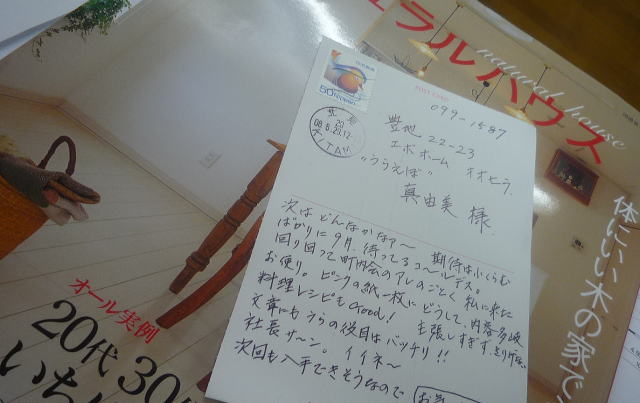 ュラルハウス
natural house
体にいい木の家で
オール実例
20代 30
いち
50 NIPPON
POST CARD
099-1587
豊地 22-23
エボホーム オオヒラ
"ううえば"
真由美 様
次は どんなかなァ〜 期待はふくらむ
ばかりに 9月、待ってるヨ〜レデス。
回り回って町内会のアレのごとく 私に来た
お便り。ピンクの紙一枚に どうして、内容多岐
料理レシピもGood! 主張しすぎず
文章にも うらの役目はバッチリ!!
社長サ〜ン。イイネ〜
次回も入手できそうなので